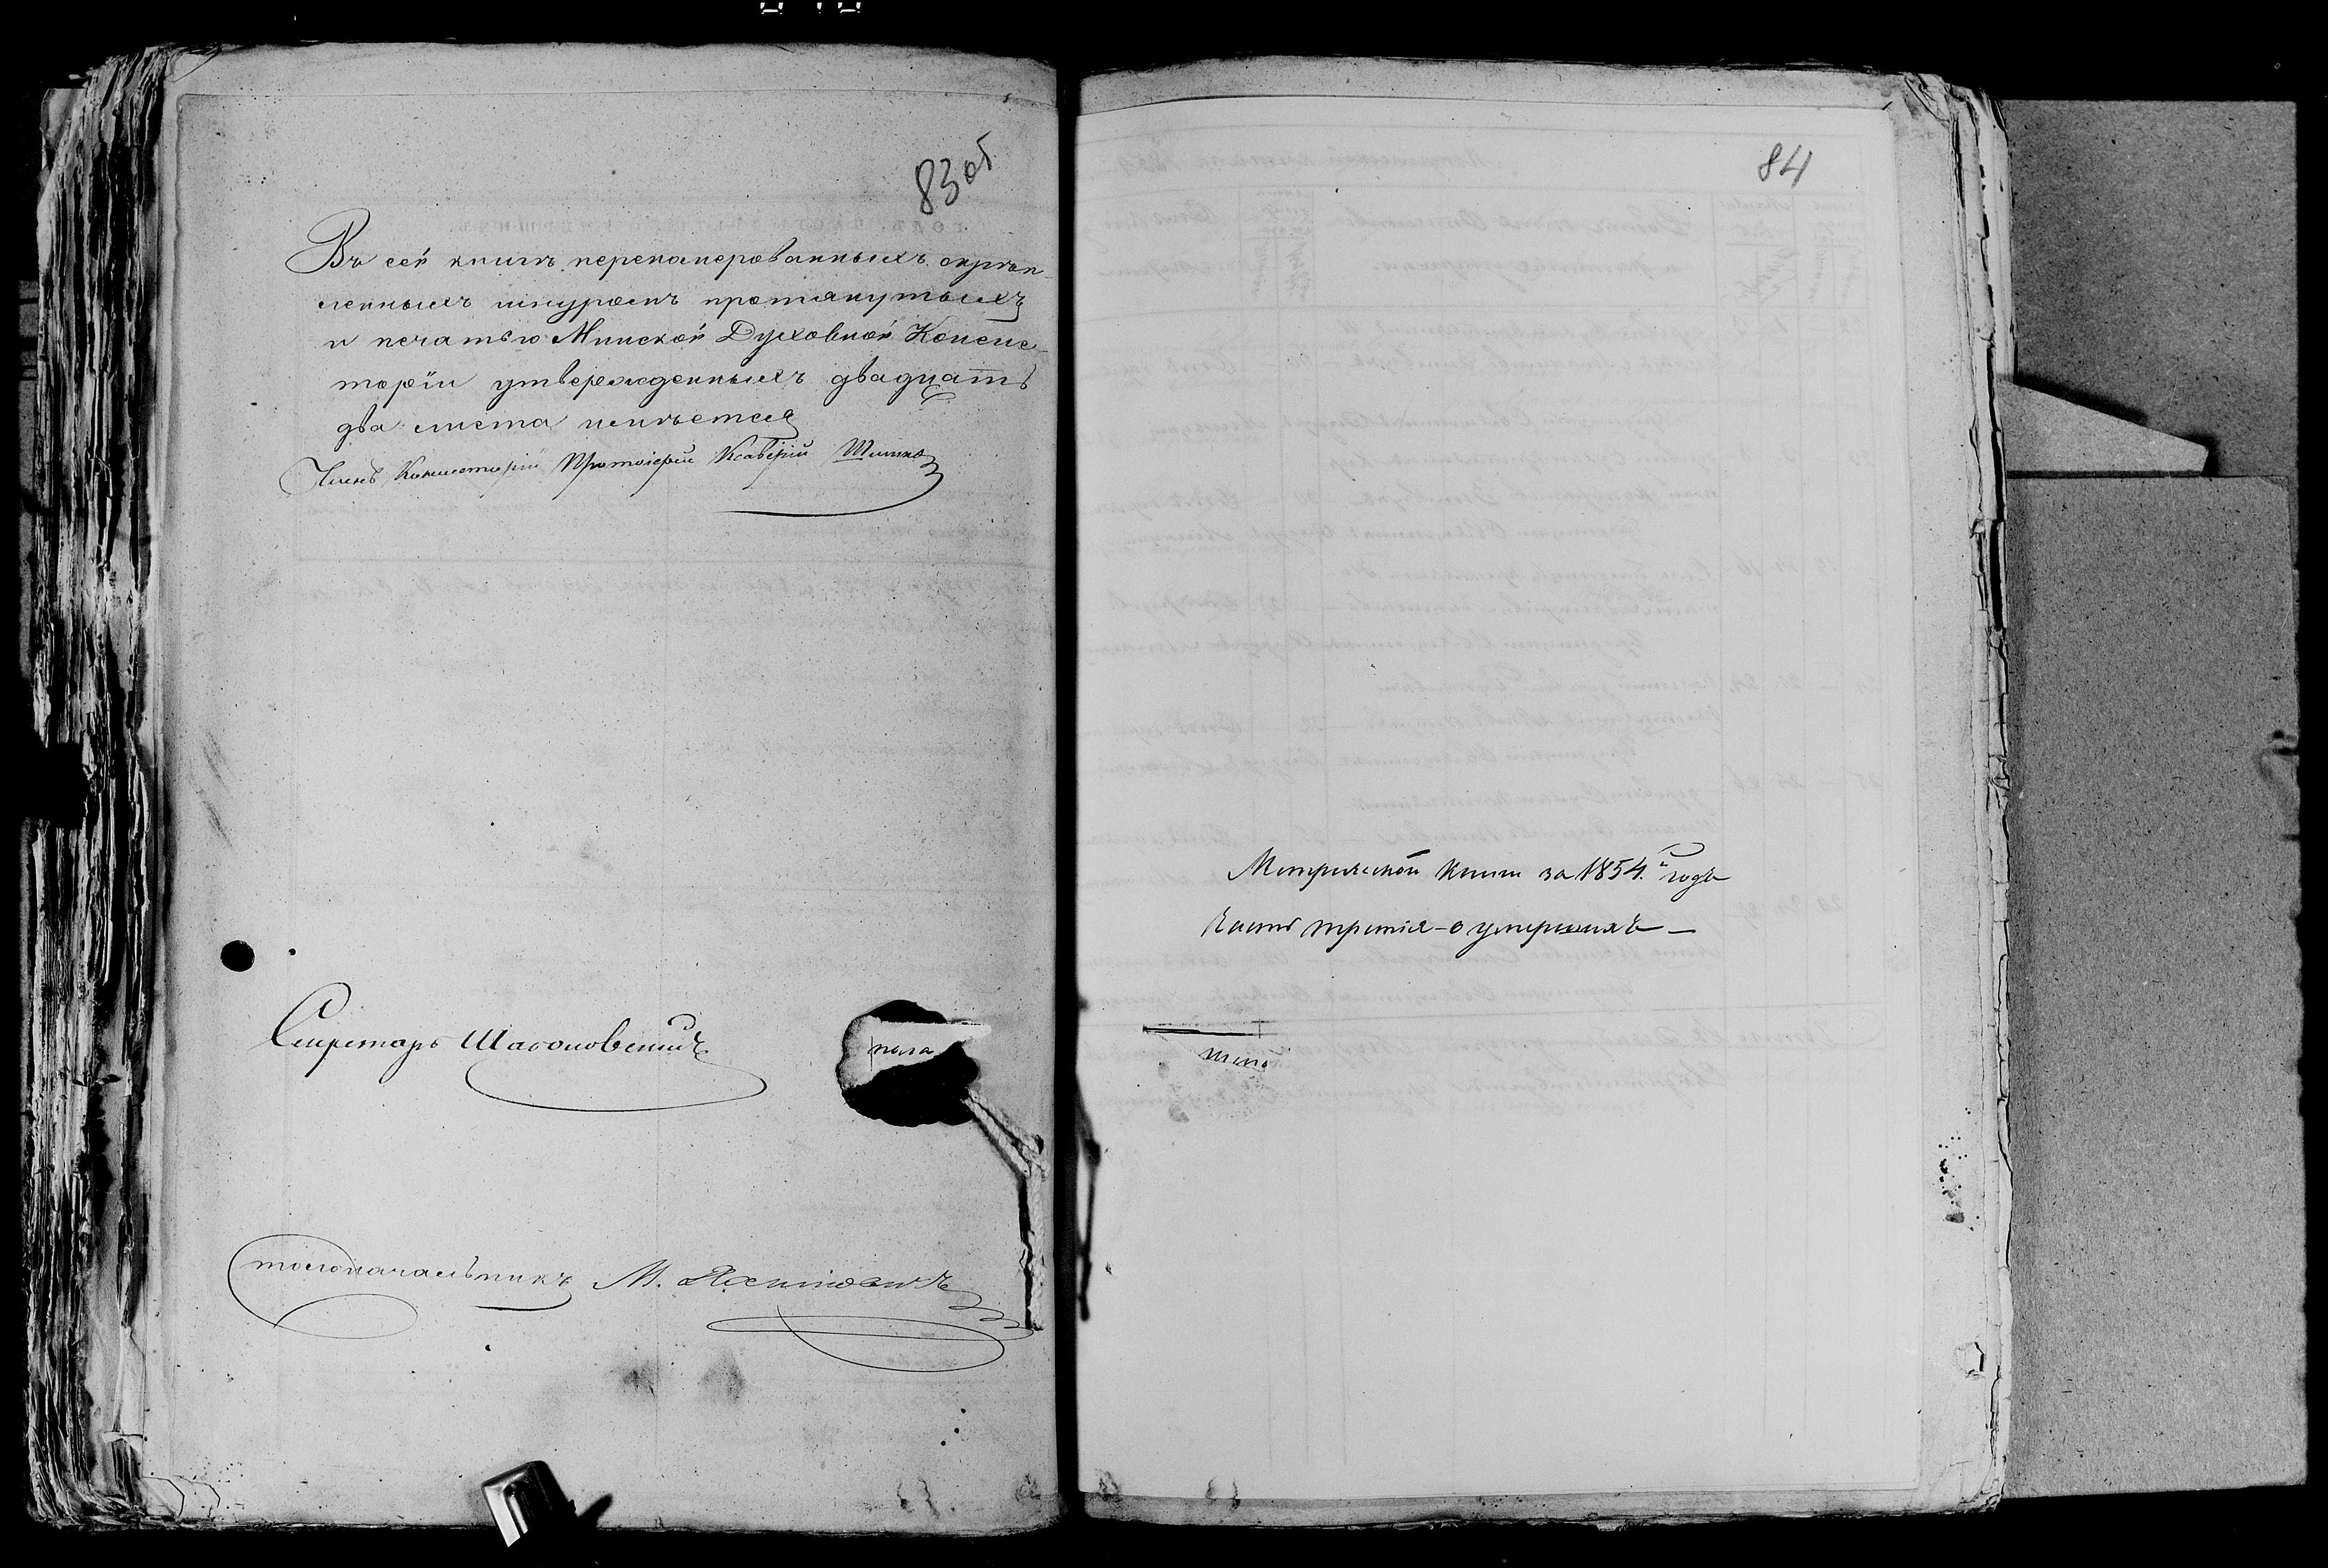 83 об
Въ сей книгѣ перенумерованныхъ скрѣп-
ленныхъ шнуромъ протянутыхъ
и печатью Минской Духовной Консис-
торіи утвержденныхъ двадцать
два листа имѣется
Членъ Консисторіи Протоіерей Ксаверій
Секретарь
пола
столоначальникъ М.
84
Метрической книги за 1854. й годъ
Часть третія - о умершихъ —